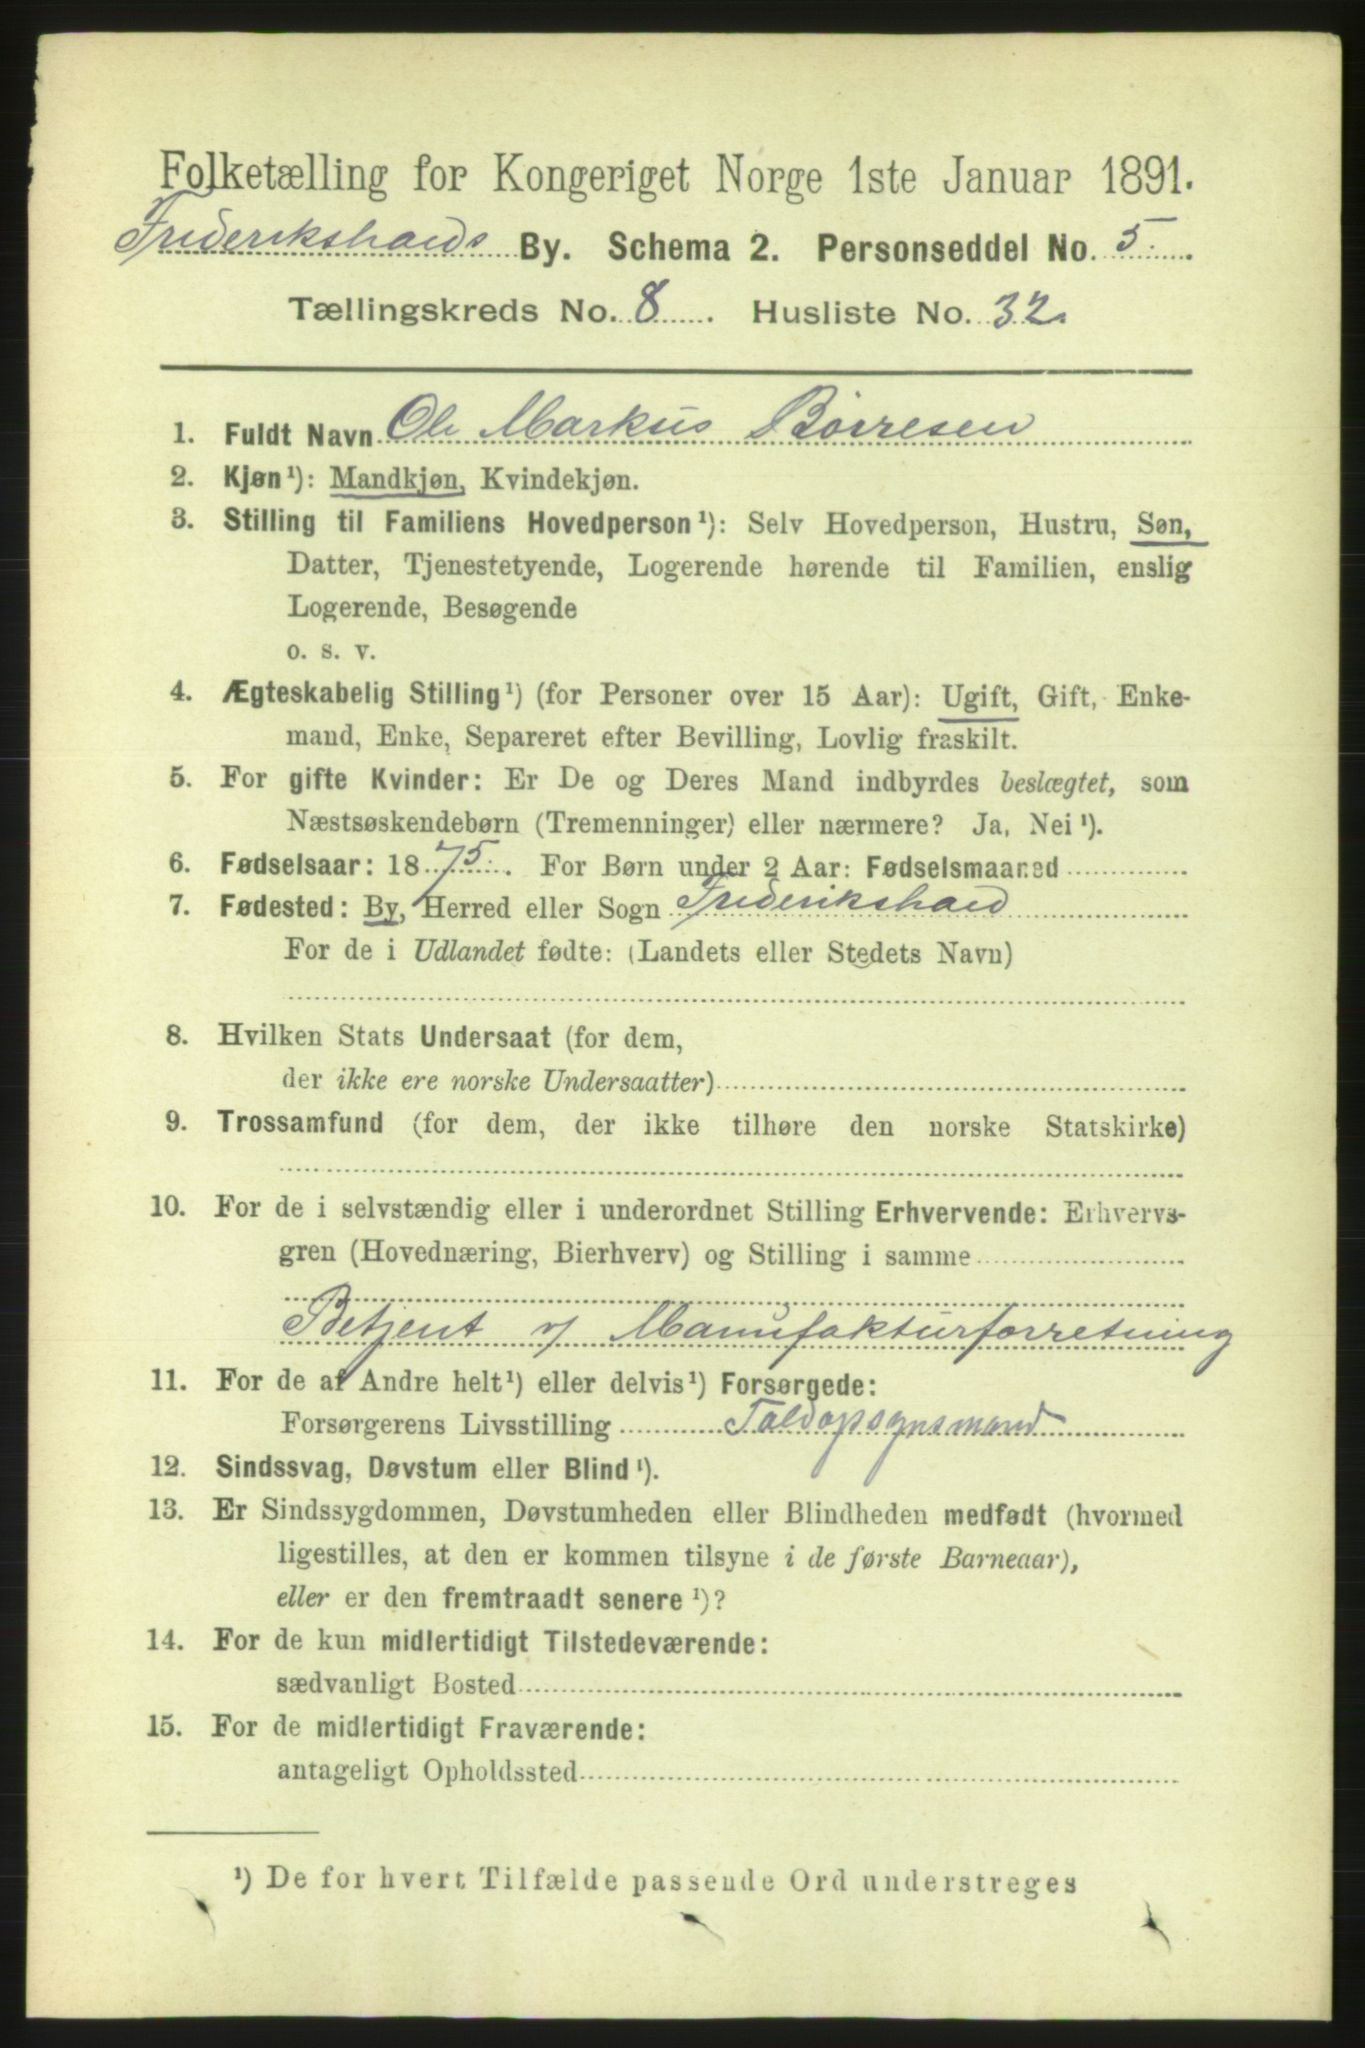 Folketælling for Kongeriget Norge 1ste Januar 1891.
Frederikshalds By. Schema 2. Personseddel No. 5.
Tællingskreds No. 8. Husliste No. 32.
1. Fuldt Navn Ole Markus Börresen
2. Kjøn¹): Mandkjøn, Kvindekjøn.
3. Stilling til Familiens Hovedperson¹): Selv Hovedperson, Hustru, Søn,
Datter, Tjenestetyende, Logerende hørende til Familien, enslig
Logerende, Besøgende
o. s. v.
4. Ægteskabelig Stilling¹) (for Personer over 15 Aar): Ugift, Gift, Enke-
mand, Enke, Separeret efter Bevilling, Lovlig fraskilt.
5. For gifte Kvinder: Er De og Deres Mand indbyrdes beslægtet, som
Næstsøskendebørn (Tremenninger) eller nærmere? Ja, Nei¹).
6. Fødselsaar: 1875. For Børn under 2 Aar: Fødselsmaaned
7. Fødested: By, Herred eller Sogn Frederikshald
For de i Udlandet fødte: (Landets eller Stedets Navn)
8. Hvilken Stats Undersaat (for dem,
der ikke ere norske Undersaatter)
9. Trossamfund (for dem, der ikke tilhøre den norske Statskirke)
10. For de i selvstændig eller i underordnet Stilling Erhvervende: Erhvervs-
gren (Hovednæring, Bierhverv) og Stilling i samme
Betjent v/ Manufakturforretning
11. For de af Andre helt¹) eller delvis¹) Forsørgede:
Forsørgerens Livsstilling Toldopsynsmand
12. Sindssvag, Døvstum eller Blind¹).
13. Er Sindssygdommen, Døvstumheden eller Blindheden medfødt (hvormed
ligestilles, at den er kommen tilsyne i de første Barneaar),
eller er den fremtraadt senere¹)?
14. For de kun midlertidigt Tilstedeværende:
sædvanligt Bosted
15. For de midlertidigt Fraværende:
antageligt Opholdssted
¹) De for hvert Tilfælde passende Ord understreges